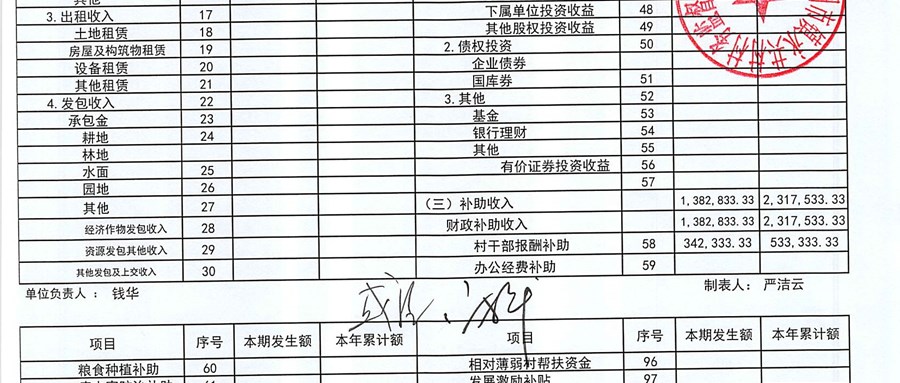 3. 出租收入 17 下属单位投资收益 48
土地租赁 18 其他股权投资收益 49
房屋及构筑物租赁 19 2. 债权投资 50
设备租赁 20 企业债券
其他租赁 21 国库券 51
4. 发包收入 22 3. 其他 52
承包金 23 基金 53
耕地 24 银行理财 54
林地 其他 55
水面 25 有价证券投资收益 56
园地 26 57
其他 27 （三）补助收入 1,382,833.33 2,317,533.33
经济作物发包收入 28 财政补助收入 1,382,833.33 2,317,533.33
资源发包其他收入 29 村干部报酬补助 58 342,333.33 533,333.33
其他发包及上交收入 30 办公经费补助 59
单位负责人 ： 钱华 制表人： 严洁云
项目 序号 本期发生额 本年累计额 项目 序号 本期发生额 本年累计额
粮食种植补助 60 相对薄弱村帮扶资金 96
发展激励补贴 97